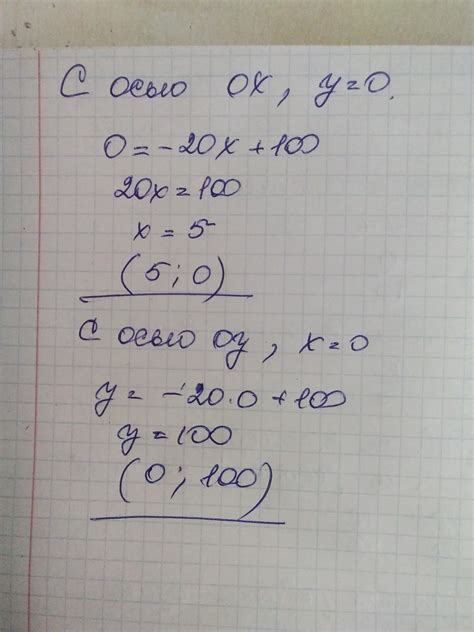 С осью OX, y=0.
0=-20x+100
20x=100
x=5
(5;0)
С осью Oy, x=0
y=-20·0+100
y=100
(0;100)